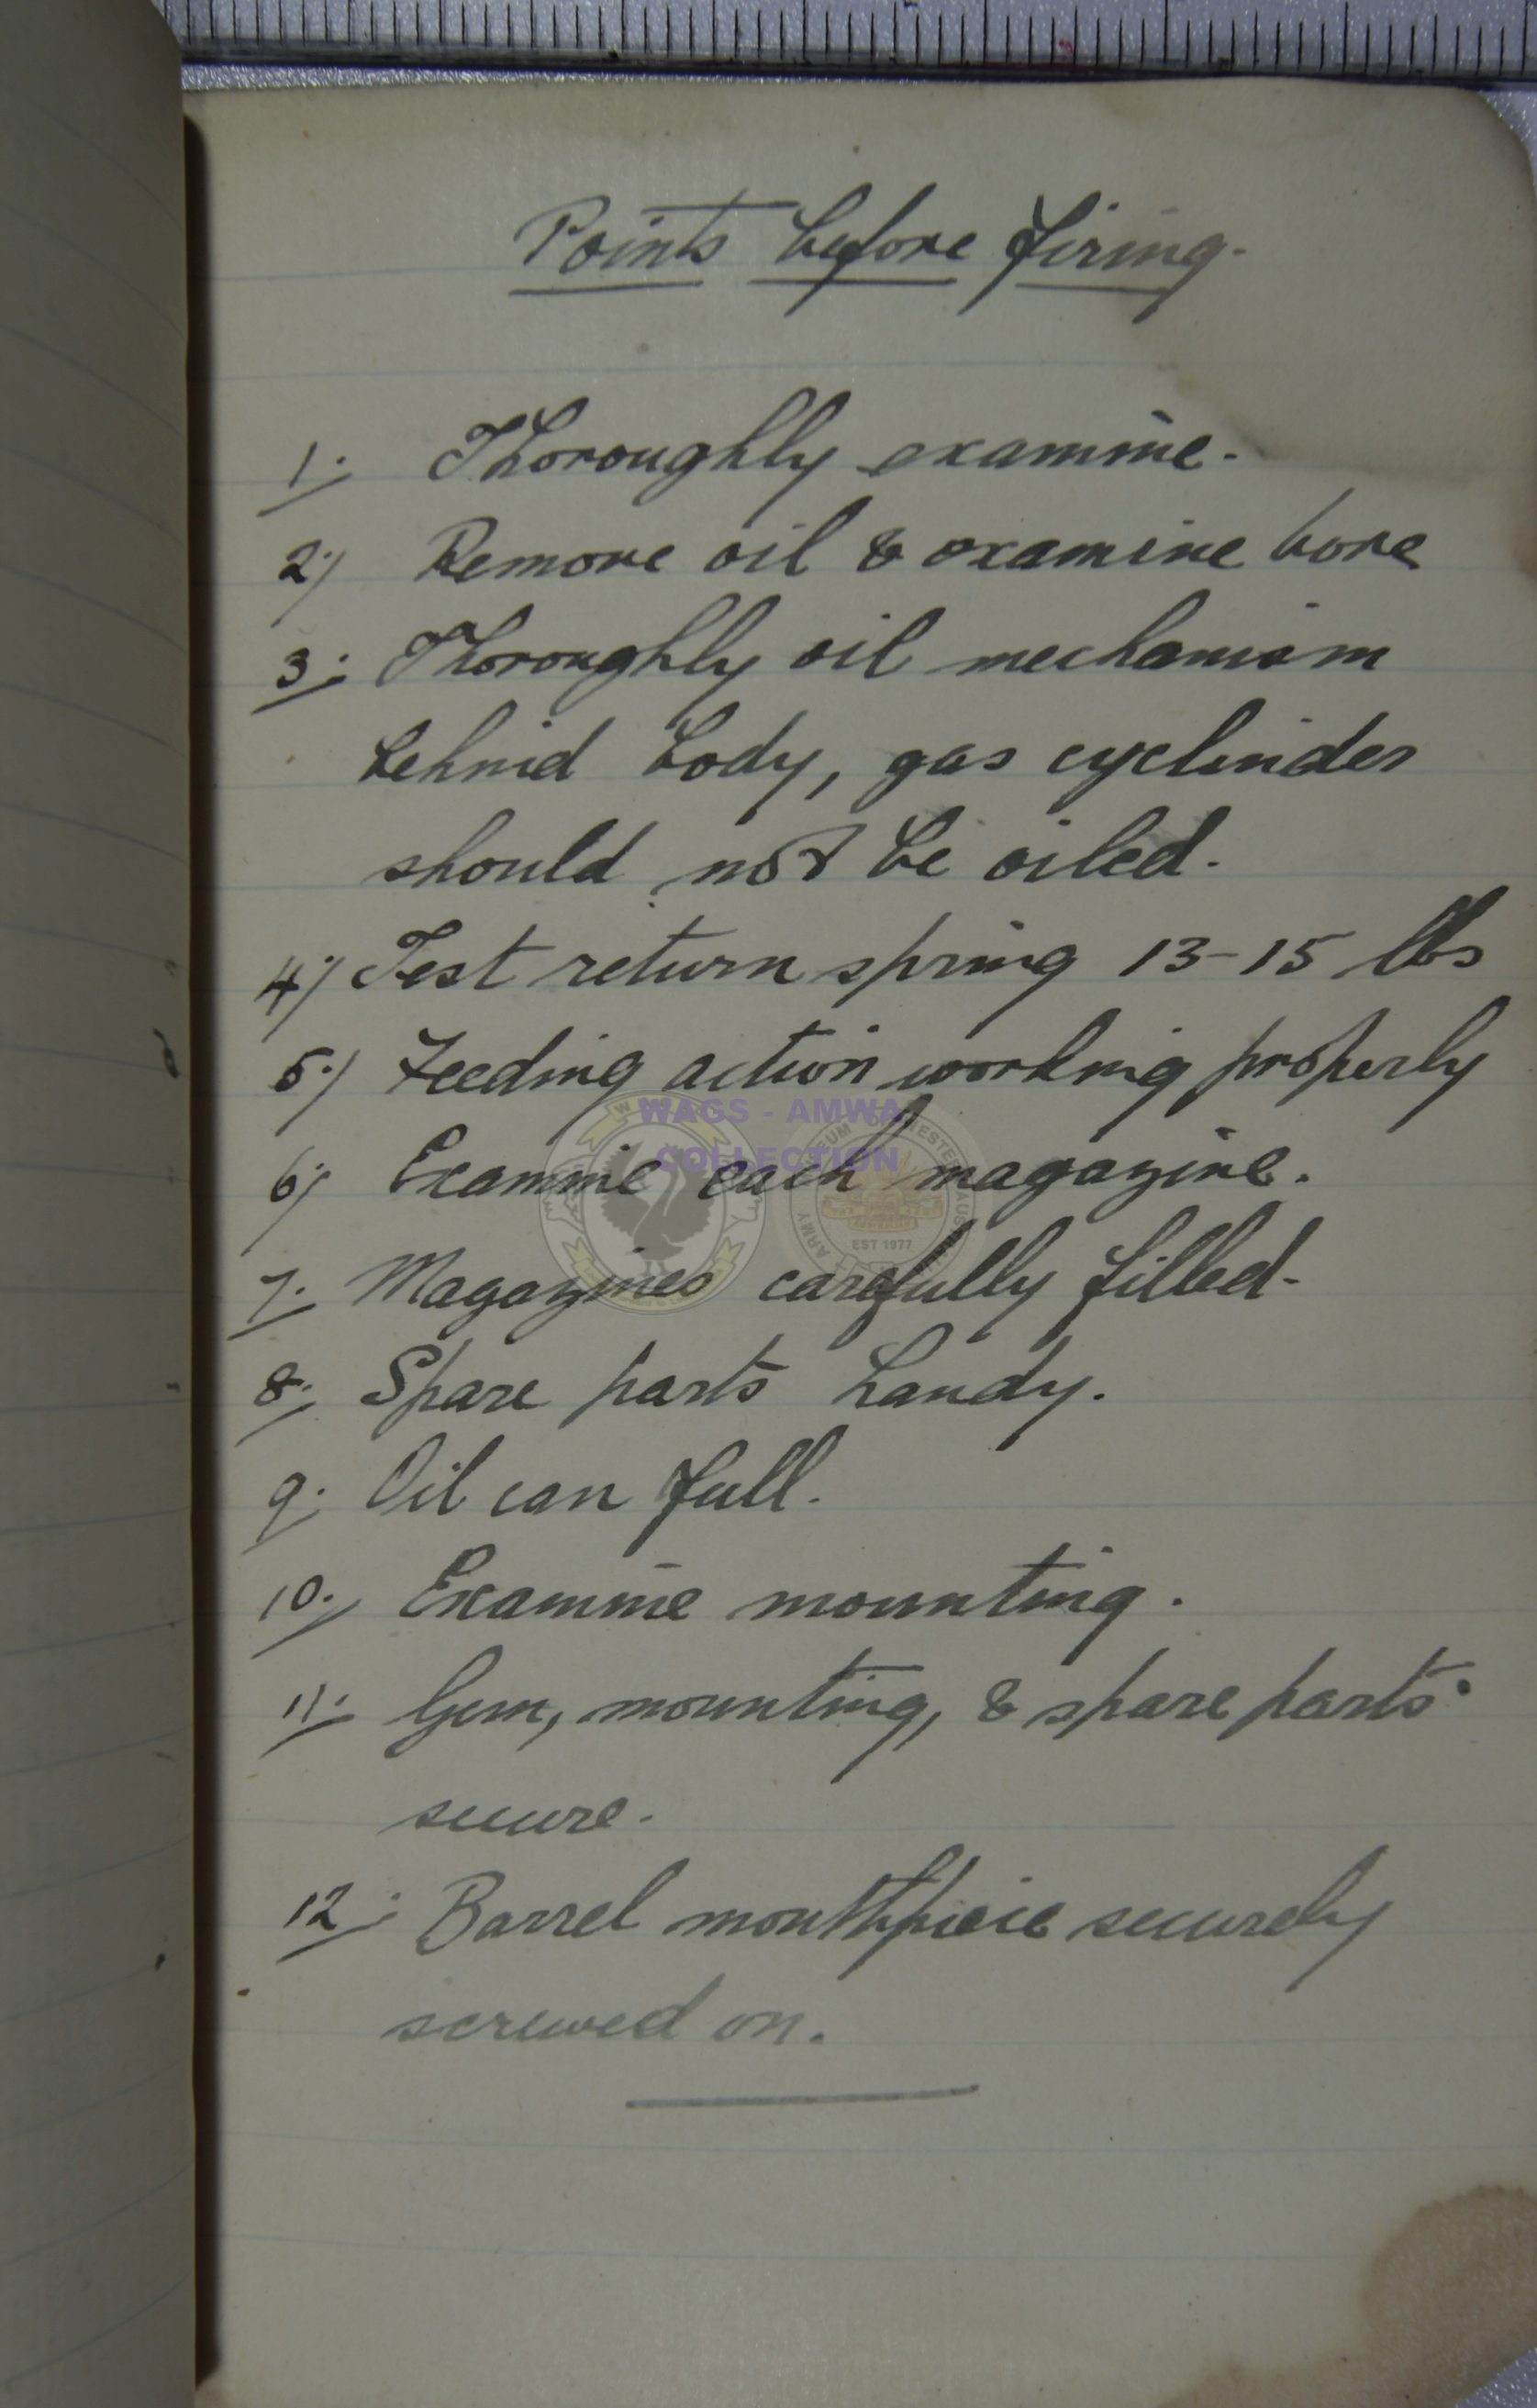 Points before firing.
1. Thoroughly examine.
2. Remove oil & examine bore
3. Thoroughly oil mechanism
behind body, gas cyclinder
should not be oiled.
4. Test return spring 13-15 lbs
5. Feeding action working properly
WAGS - AMWA
COLLECTION
6. Examine each magazine.
EST 1977
7. Magazines carefully filled.
8. Spare parts handy.
9. Oil can full.
10. Examine mounting.
11. Gun, mounting, & spare parts
secure.
12. Barrel mouthpiece securely
screwed on.